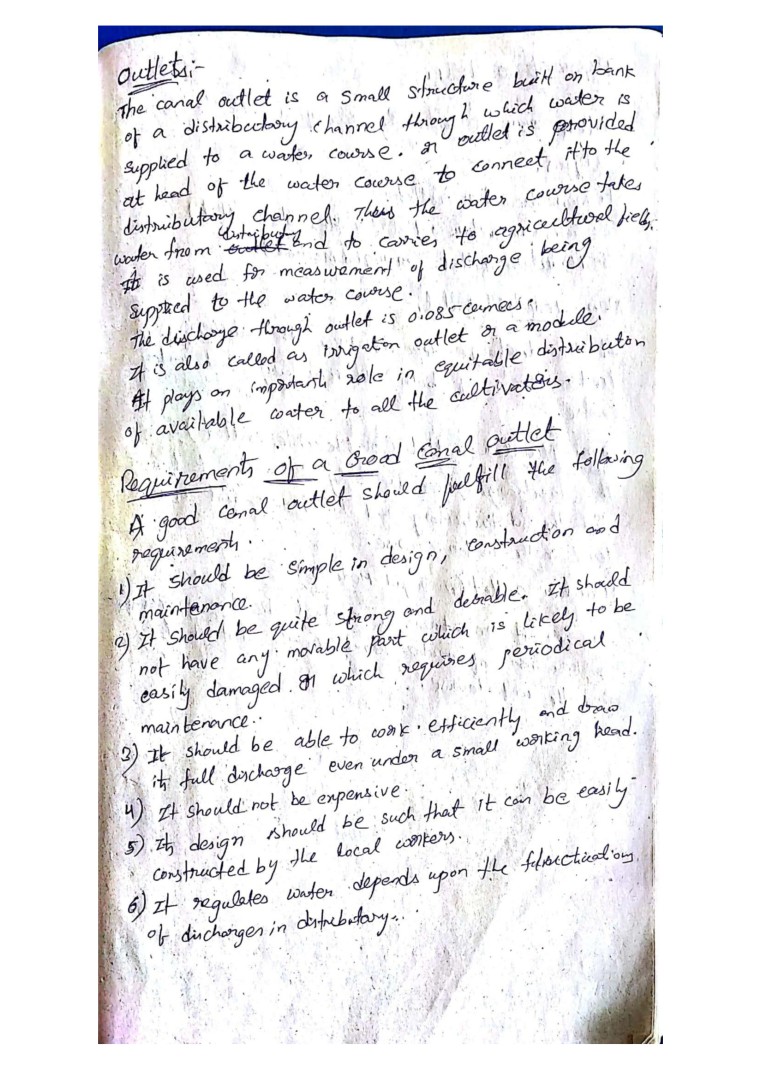 Outlets:-
The canal outlet is a small structure built on bank
of a distributary channel through which water is
supplied to a water course. An outlet is provided
at head of the water course to connect it to the
distributary channel. Thus the water course takes
water from distributary and to carries to agricultural fields.
It is used for measurement of discharge being
supplied to the water course.
The discharge through outlet is 0.085 cumecs.
It is also called as irrigation outlet or a module.
It plays an important role in equitable distribution
of available water to all the cultivators.
Requirements of a Good Canal outlet
A good canal outlet should fulfill the following
requirements.
1) It should be simple in design, construction and
maintenance.
2) It should be quite strong and durable. It should
not have any movable part which is likely to be
easily damaged or which requires periodical
maintenance..
3) It should be able to work efficiently and draw
its full discharge even under a small working head.
4) It should not be expensive.
5) Its design should be such that it can be easily
constructed by the local workers.
6) It regulates water depends upon the
of discharges in distributary..